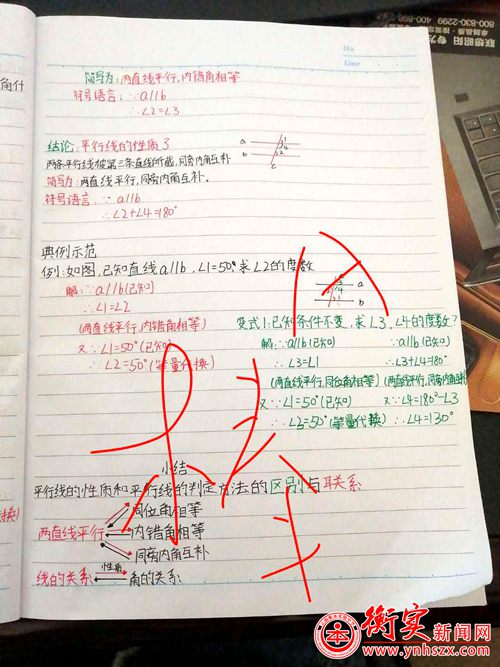 No
Date
简写为:两直线平行,内错角相等
符号语言:∵a∥b
∴∠2=∠3
结论:平行线的性质3
两条平行线被第三条直线所截,同旁内角互补
简写为:两直线平行,同旁内角互补。
符号语言:∵a∥b
∴∠2+∠4=180°
a
b
c
1
4
2
典例示范
例:如图,已知直线a∥b,∠1=50°,求∠2的度数
解:∵a∥b(已知)
∴∠1=∠2
(两直线平行,内错角相等)
又∵∠1=50°(已知)
∴∠2=50°(等量代换)
a
b
变式1:已知条件不变,求∠3,∠4的度数?
解:∵a∥b(已知)
∴∠3=∠1
(两直线平行,同位角相等)
又∵∠1=50°(已知)
∴∠2=50°(等量代换)
∵a∥b(已知)
∴∠3+∠4=180°
(两直线平行,同旁内角互补)
又∵∠4=180°-∠3
∴∠4=130°
小结
平行线的性质和平行线的判定方法的区别与联系
同位角相等
两直线平行 内错角相等
同旁内角互补
线的关系 性质 角的关系
角什
换)
联想昭阳
800-830-2299
400-898
卓越品质
专为
衡实新闻网
www.ynhszx.com